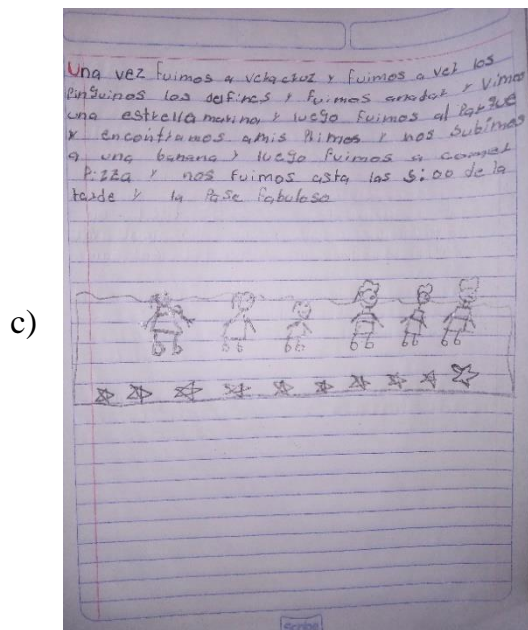 Una vez fuimos a veracruz y fuimos a ver los
Pinguinos los defines y fuimos anadar y Vimos
una estrella marina y luego fuimos al Parque
y encontramos amis Primos y nos Subimos
a una banana y luego fuimos a comer
Pizza y nos fuimos asta las 5:00 de la
tarde y la Pase fabuloso
c)
Scribe